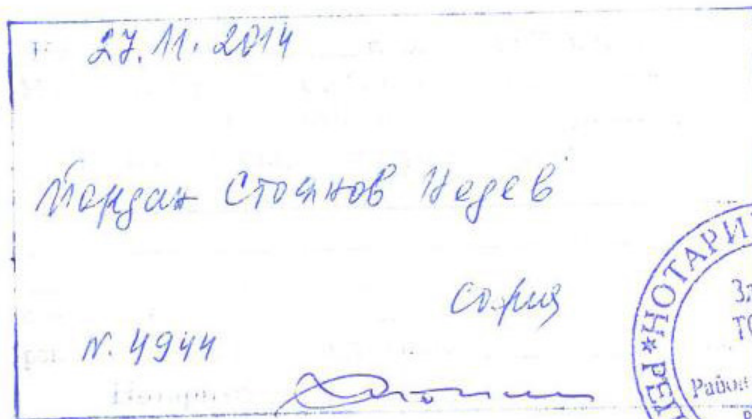 27.11.2014
Йордан Стоянов Недев
София
N. 4944
НОТАРИ
РЕ
Район